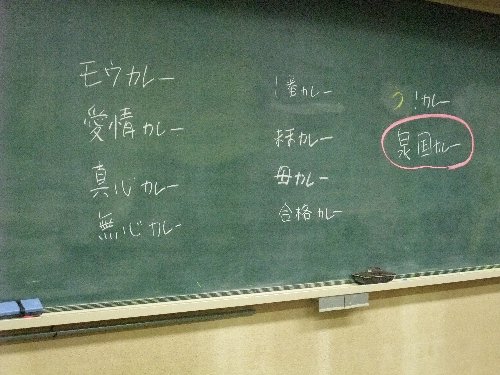 モウカレー
愛情カレー
真心カレー
無心カレー
1番カレー
カレー
母カレー
合格カレー
つ!カレー
カレー